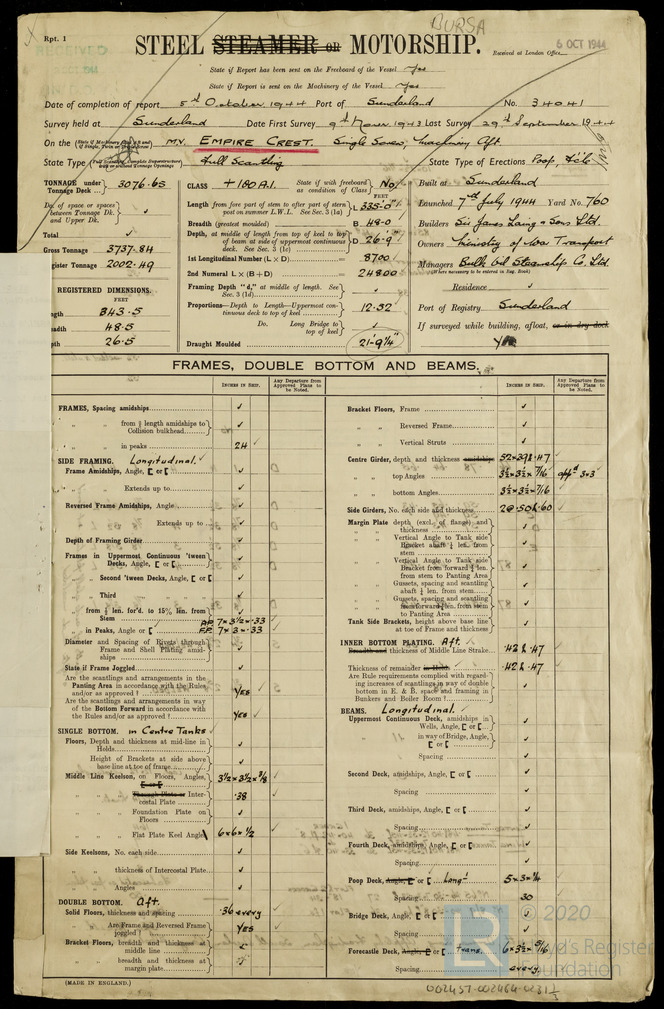 BURSA
Rpt. 1
RECEIVED
STEEL STEAMER OR MOTORSHIP.
Received at London Office
6 OCT 1944
State if Report has been sent on the Freeboard of the Vessel Yes
State if Report is sent on the Machinery of the Vessel Yes
Date of completion of report 5th October 1944 Port of Sunderland No. 34041
Survey held at Sunderland Date First Survey 9th Last Survey 29th September 1944
On the M.V. EMPIRE CREST. Single Screw, Machinery Aft
State Type Full Scantling State Type of Erections Poop, Fc'le
TONNAGE under Tonnage Deck 3076.65
Do. of space or spaces between Tonnage Dk. and Upper Dk.
Total
Gross Tonnage 3737.84
gister Tonnage 2002.49
REGISTERED DIMENSIONS.
FEET
ngth 343.5
eadth 48.5
pth 26.5
CLASS +100A1. State if with freeboard as condition of Class No
FEET
Length from fore part of stem to after part of stern post on summer L.W.L. See Sec. 3 (1a) L 335.0
Breadth (greatest moulded) B 48.0
Depth, at middle of length from top of keel to top of beam at side of uppermost continuous deck. See Sec. 3 (1c) D 26.9
1st Longitudinal Number (L × D) 8700
2nd Numeral L × (B + D) 24800
Framing Depth "d," at middle of length. See Sec. 3 (1d)
Proportions—Depth to Length—Uppermost continuous deck to top of keel 12.52
Do. Long Bridge to top of keel
Draught Moulded 21'-9¼"
Built at Sunderland
Launched 7th July 1944 Yard No. 760
Builders Sir James Laing & Sons Ltd.
Owners Ministry of War Transport
Managers Bulk Oil Steamship Co. Ltd.
Residence
Port of Registry Sunderland
If surveyed while building, afloat, or in dry dock
Yes
FRAMES, DOUBLE BOTTOM AND BEAMS.
INCHES IN SHIP.
Any Departure from Approved Plans to be Noted.
INCHES IN SHIP.
Any Departure from Approved Plans to be Noted.
FRAMES, Spacing amidships
" " from ⅕ length amidships to Collision bulkhead
" " in peaks 24
SIDE FRAMING. Longitudinal.
Frame Amidships, Angle, [ or [
" " Extends up to
Reversed Frame Amidships, Angle
" " Extends up to
Depth of Framing Girder
Frames in Uppermost Continuous 'tween Decks, Angle, [ or [
" Second 'tween Decks, Angle, [ or [
" Third
" from ⅕ len. for'd. to 15% len. from Stem
" in Peaks, Angle or [ A.P. 7×3½×.33
F.P. 7×3×.33
Diameter and Spacing of Rivets through Frame and Shell Plating amidships
State if Frame Joggled
Are the scantlings and arrangements in the Panting Area in accordance with the Rules and/or as approved ? Yes
Are the scantlings and arrangements in way of the Bottom Forward in accordance with the Rules and/or as approved ? Yes
SINGLE BOTTOM. in Centre Tanks
Floors, Depth and thickness at mid-line in Holds
" Height of Brackets at side above base line at toe of frame
Middle Line Keelson, on Floors, Angles, [ or [ 3½×3½×⅜
" " Through Plate or Intercostal Plate .38
" " Foundation Plate on Floors
" " Flat Plate Keel Angle 6×6×½
Side Keelsons, No. each side
" " thickness of Intercostal Plate
" " Angles
DOUBLE BOTTOM. Aft.
Solid Floors, thickness and spacing .36 every
" " Are Frame and Reversed Frame joggled ? Yes
Bracket Floors, breadth and thickness at middle line
" " breadth and thickness at margin plate
Bracket Floors, Frame
" " Reversed Frame
" " Vertical Struts
Centre Girder, depth and thickness amidships 52×39&.47
" " top Angles 3½×3½×7/16 appd 3×3
" " bottom Angles 3½×3½×7/16
Side Girders, No. each side and thickness 2@.50&.60
Margin Plate depth (excl. of flange) and thickness
" " Vertical Angle to Tank side Bracket abaft ¼ len. from stem
" " Vertical Angle to Tank side Bracket from forward ¼ len. from stem to Panting Area
" " Gussets, spacing and scantling abaft ¼ len. from stem
" " Gussets, spacing and scantling from forward ¼ len. from stem to Panting Area
Tank Side Brackets, height above base line at toe of Frame and thickness
INNER BOTTOM PLATING. Aft.
Breadth and thickness of Middle Line Strake .42&.47
Thickness of remainder in Hold .42&.47
Are Rule requirements complied with regarding increases of scantlings in way of double bottom in E. & B. space and framing in Bunkers and Boiler Room ?
BEAMS. Longitudinal.
Uppermost Continuous Deck, amidships in Wells, Angle, [ or [
" " in way of Bridge, Angle, [ or [
" " Spacing
Second Deck, amidships, Angle, [ or [
" " Spacing
Third Deck, amidships, Angle, [ or [
" " Spacing
Fourth Deck, amidships, Angle, [ or [
" " Spacing
Poop Deck, Angle, [ or [ Longl 5×3×¼
" " Spacing 30
Bridge Deck, Angle, [ or [
" " Spacing
Forecastle Deck, Angle, [ or [ trans. 6×3½×5/16
" " Spacing every
(MADE IN ENGLAND.)
LR
© 2020
Lloyd's Register
Foundation
002457-002464-0231½